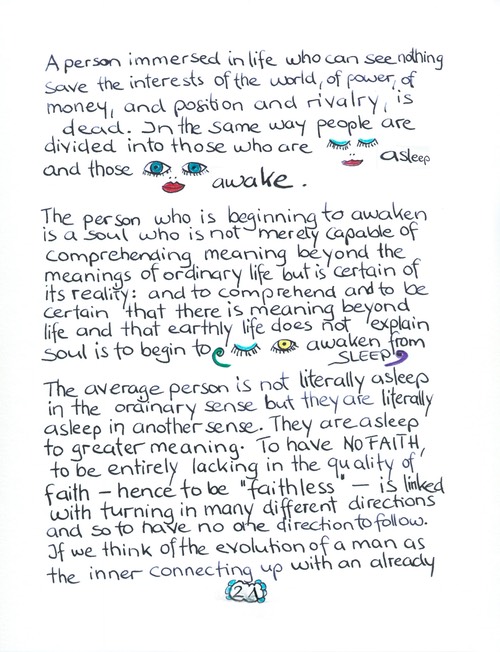 A person immersed in life who can see nothing
save the interests of the world, of power, of
money, and position and rivalry, is
dead. In the same way people are
divided into those who are asleep
and those awake.
The person who is beginning to awaken
is a soul who is not merely capable of
comprehending meaning beyond the
meanings of ordinary life but is certain of
its reality: and to comprehend and to be
certain that there is meaning beyond
life and that earthly life does not explain
soul is to begin to awaken from
SLEEP
The average person is not literally asleep
in the ordinary sense but they are literally
asleep in another sense. They are asleep
to greater meaning. To have NO FAITH,
to be entirely lacking in the quality of
faith – hence to be "faithless" – is linked
with turning in many different directions
and so to have no one direction to follow.
If we think of the evolution of a man as
the inner connecting up with an already
21